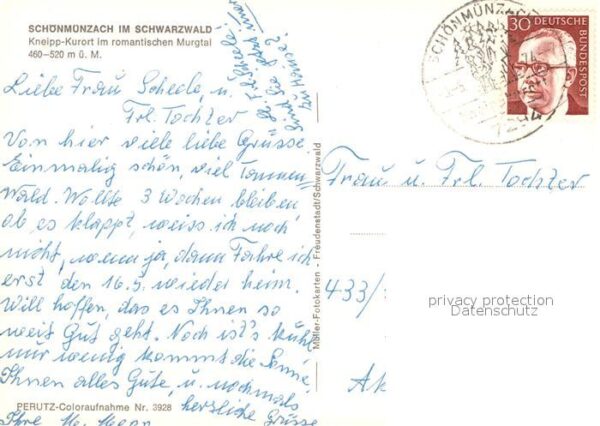 SCHÖNMÜNZACH IM SCHWARZWALD
Kneipp-Kurort im romantischen Murgtal
460–520 m ü. M.
Liebe Frau Scheele, u.
Frl. Tochter
Von hier viele liebe Grüsse
Einmalig schön, viel Tannen
Wald. Wollte 3 Wochen bleiben,
ob es klappt, weiss ich noch
nicht, wenn ja, dann Fahre ich
erst den 16.5. wieder heim.
Will hoffen, das es Ihnen so
weit Gut geht. Noch ist's kühl
nur wenig kommt die Sonne.
Ihnen alles Gute, u. nochmals
herzliche Grüsse
Ihre M.
Frl. Scheele
Sind Sie jetzt immer
zu Hause?
PERUTZ-Coloraufnahme Nr. 3928
Müller-Fotokarten - Freudenstadt/Schwarzwald
SCHÖNMÜNZACH
30 DEUTSCHE
BUNDESPOST
Frau u. Frl. Tochter
433/
privacy protection
Datenschutz